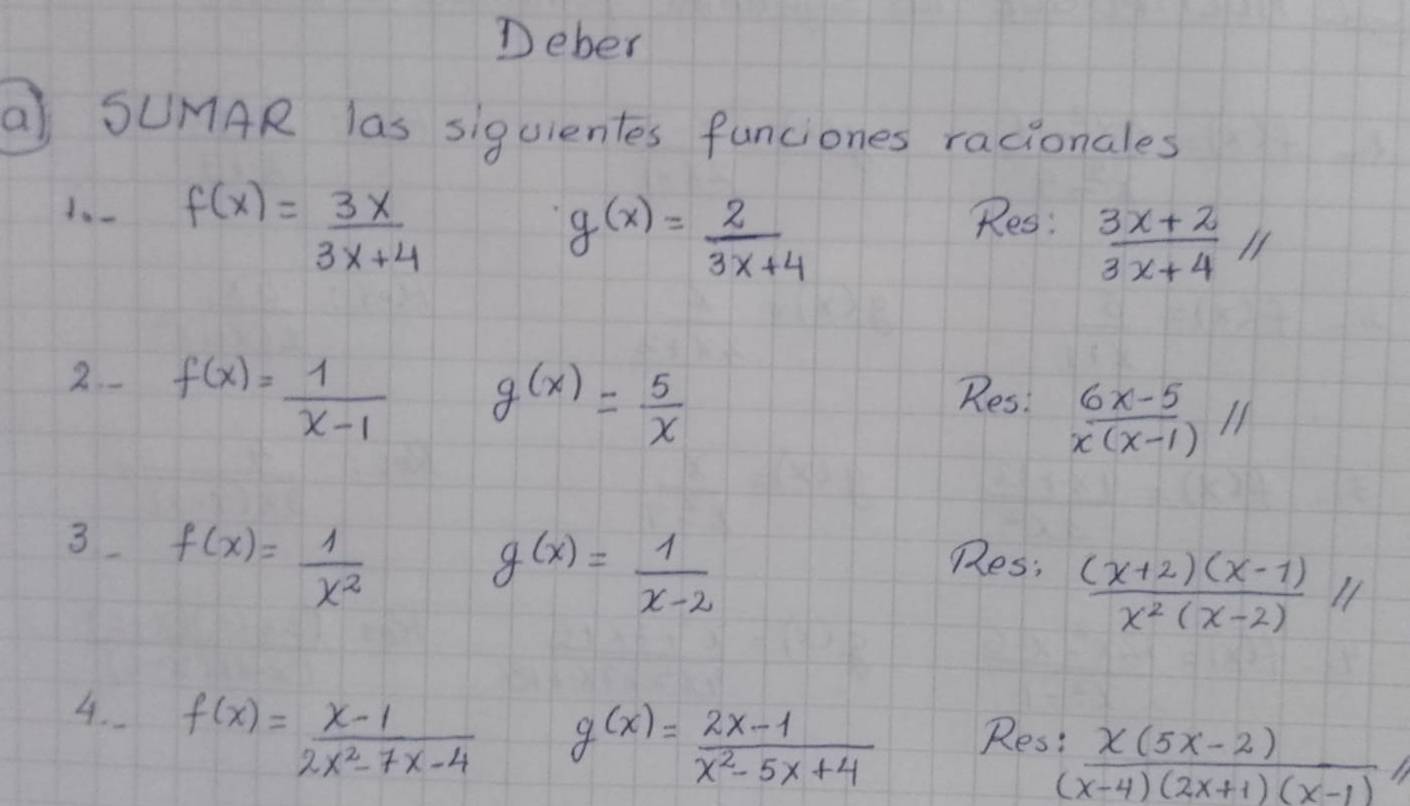 Deber
a) SUMAR las siguientes funciones racionales
1.- f(x) = 3x/(3x+4) g(x) = 2/(3x+4) Res: (3x+2)/(3x+4) //
2.- f(x) = 1/(x-1) g(x) = 5/x Res: (6x-5)/(x(x-1)) //
3- f(x) = 1/x² g(x) = 1/(x-2) Res: ((x+2)(x-1))/(x²(x-2)) //
4.- f(x) = (x-1)/(2x²-7x-4) g(x) = (2x-1)/(x²-5x+4) Res: (x(5x-2))/((x-4)(2x+1)(x-1)) //